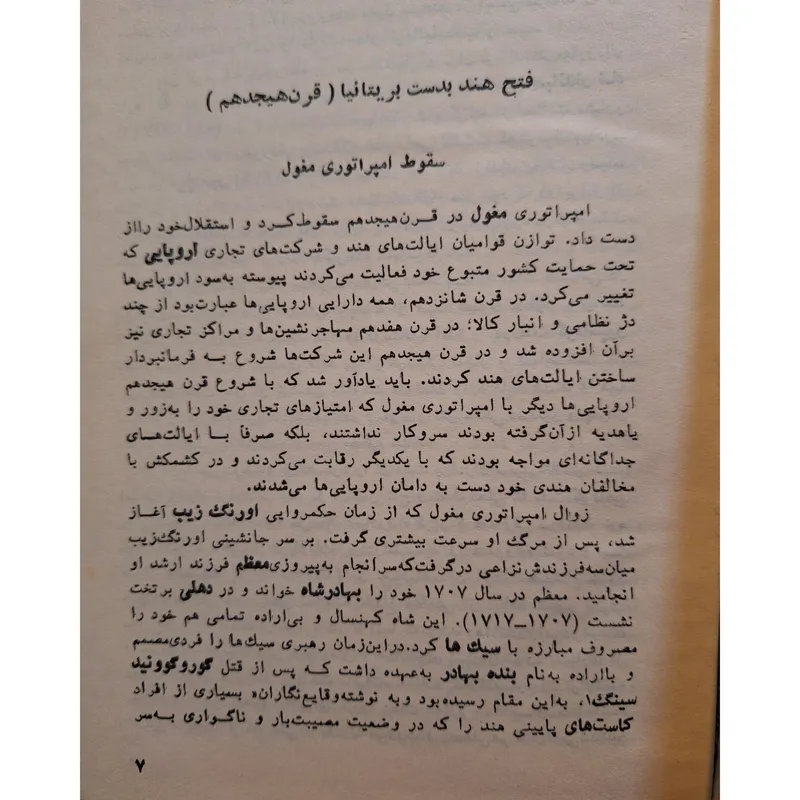 فتح هند بدست بریتانیا ( قرن هیجدهم )
سقوط امپراتوری مغول
امپراتوری مغول در قرن هیجدهم سقوط کرد و استقلال خود رااز
دست داد. توازن قوامیان ایالت‌های هند و شرکت‌های تجاری اروپایی که
تحت حمایت کشور متبوع خود فعالیت می‌کردند پیوسته به‌سود اروپایی‌ها
تغییر می‌کرد. در قرن شانزدهم، همه دارایی اروپایی‌ها عبارت‌بود از چند
دژ نظامی و انبار کالا؛ در قرن هفدهم مهاجرنشین‌ها و مراکز تجاری نیز
برآن افزوده شد و در قرن هیجدهم این شرکت‌ها شروع به فرمانبردار
ساختن ایالت‌های هند کردند. باید یادآور شد که با شروع قرن هیجدهم
اروپایی‌ها دیگر با امپراتوری مغول که امتیازهای تجاری خود را به‌زور و
یاهدیه ازآن‌گرفته بودند سروکار نداشتند، بلکه صرفاً با ایالت‌های
جداگانه‌ای مواجه بودند که با یکدیگر رقابت می‌کردند و در کشمکش با
مخالفان هندی خود دست به دامان اروپایی‌ها می‌شدند.
زوال امپراتوری مغول که از زمان حکمروایی اورنگ زیب آغاز
شد، پس از مرگ او سرعت بیشتری گرفت. بر سر جانشینی اورنگ‌زیب
میان‌سه‌فرزندش‌نزاعی درگرفت‌که‌سرانجام به‌پیروزی‌معظم فرزند ارشد او
انجامید. معظم در سال ۱۷۰۷ خود را بهادرشاه خواند و در دهلی برتخت
نشست (۱۷۰۷–۱۷۱۷). این شاه کهنسال و بی‌اراده تمامی هم خود را
مصروف مبارزه با سیك ها کرد.دراین‌زمان رهبری سیك‌ها را فردی‌مصمم
و بااراده به‌نام بنده بهادر به‌عهده داشت که پس از قتل گوروگوونید
سینگ۱، به‌این مقام رسیده‌بود وبه نوشته‌وقایع‌نگاران» بسیاری از افراد
کاست‌های پایینی هند را که در وضعیت مصیبت‌بار و ناگواری به‌سر
۷